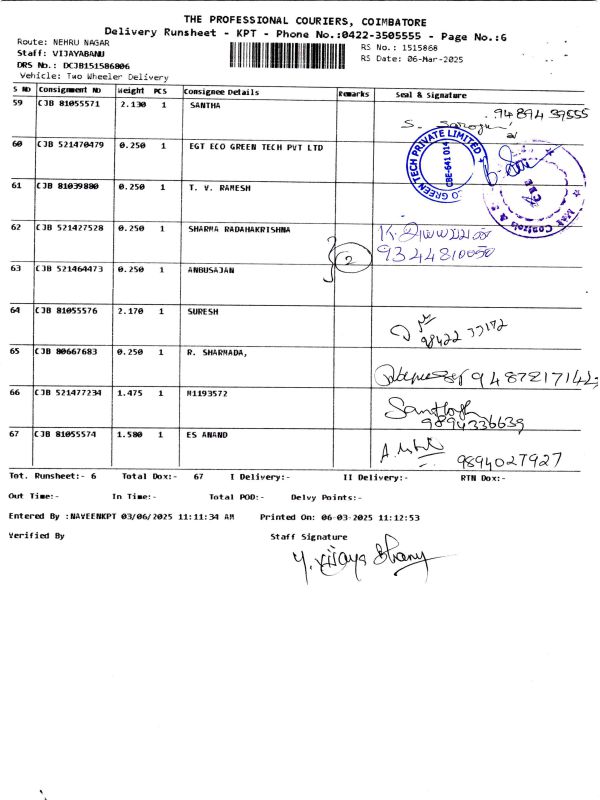 THE PROFESSIONAL COURIERS, COIMBATORE
Delivery Runsheet - KPT - Phone No.:0422-3505555 - Page No.:6
Route: NEHRU NAGAR
Staff: VIJAYABANU
DRS No.: DCJB151586806
Vehicle: Two Wheeler Delivery
RS No.: 1515868
RS Date: 06-Mar-2025
S NO Consignment NO Weight PCS Consignee Details Remarks Seal & Signature
59 CJB 81055571 2.130 1 SANTHA
60 CJB 521470479 0.250 1 EGT ECO GREEN TECH PVT LTD
O GREEN TECH PRIVATE LIMITED
CBE-641 014
61 CJB 81039880 0.250 1 T. V. RAMESH
62 CJB 521427528 0.250 1 SHARMA RADAHAKRISHNA
9344810050
2
63 CJB 521464473 0.250 1 ANBUSAJAN
64 CJB 81055576 2.170 1 SURESH
65 CJB 80667683 0.250 1 R. SHARMADA,
66 CJB 521477234 1.475 1 M1193572
Santhosh
9894336639
67 CJB 81055574 1.580 1 ES ANAND
9894027927
Tot. Runsheet:- 6 Total Dox:- 67 I Delivery:- II Delivery:- RTN Dox:-
Out Time:- In Time:- Total POD:- Delvy Points:-
Entered By :NAVEENKPT 03/06/2025 11:11:34 AM Printed On: 06-03-2025 11:12:53
Verified By Staff Signature
Y. Vijaya Bhanu